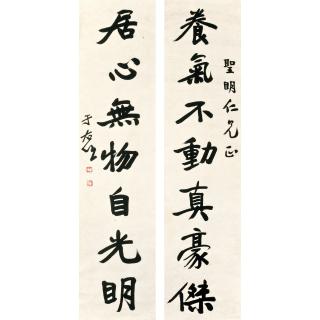 養氣不動真豪傑
聖明仁兄正
居心無物自光明
于右任